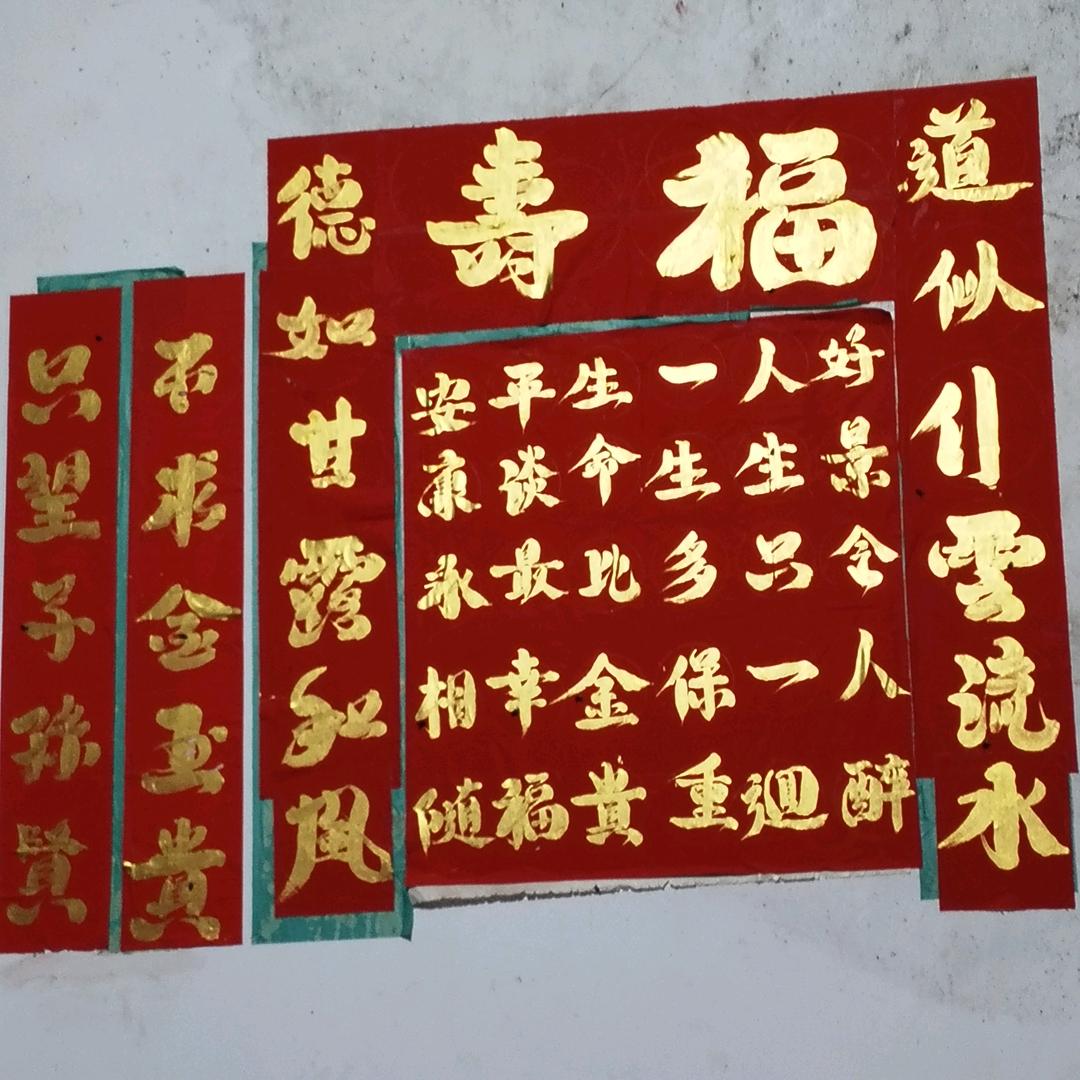 福壽
道似行雲流水
好景令人醉
人生只一迴
一生多保重
生命比金貴
平淡最幸福
安康永相随
德如甘露和風
不求金玉貴
只望子孫賢